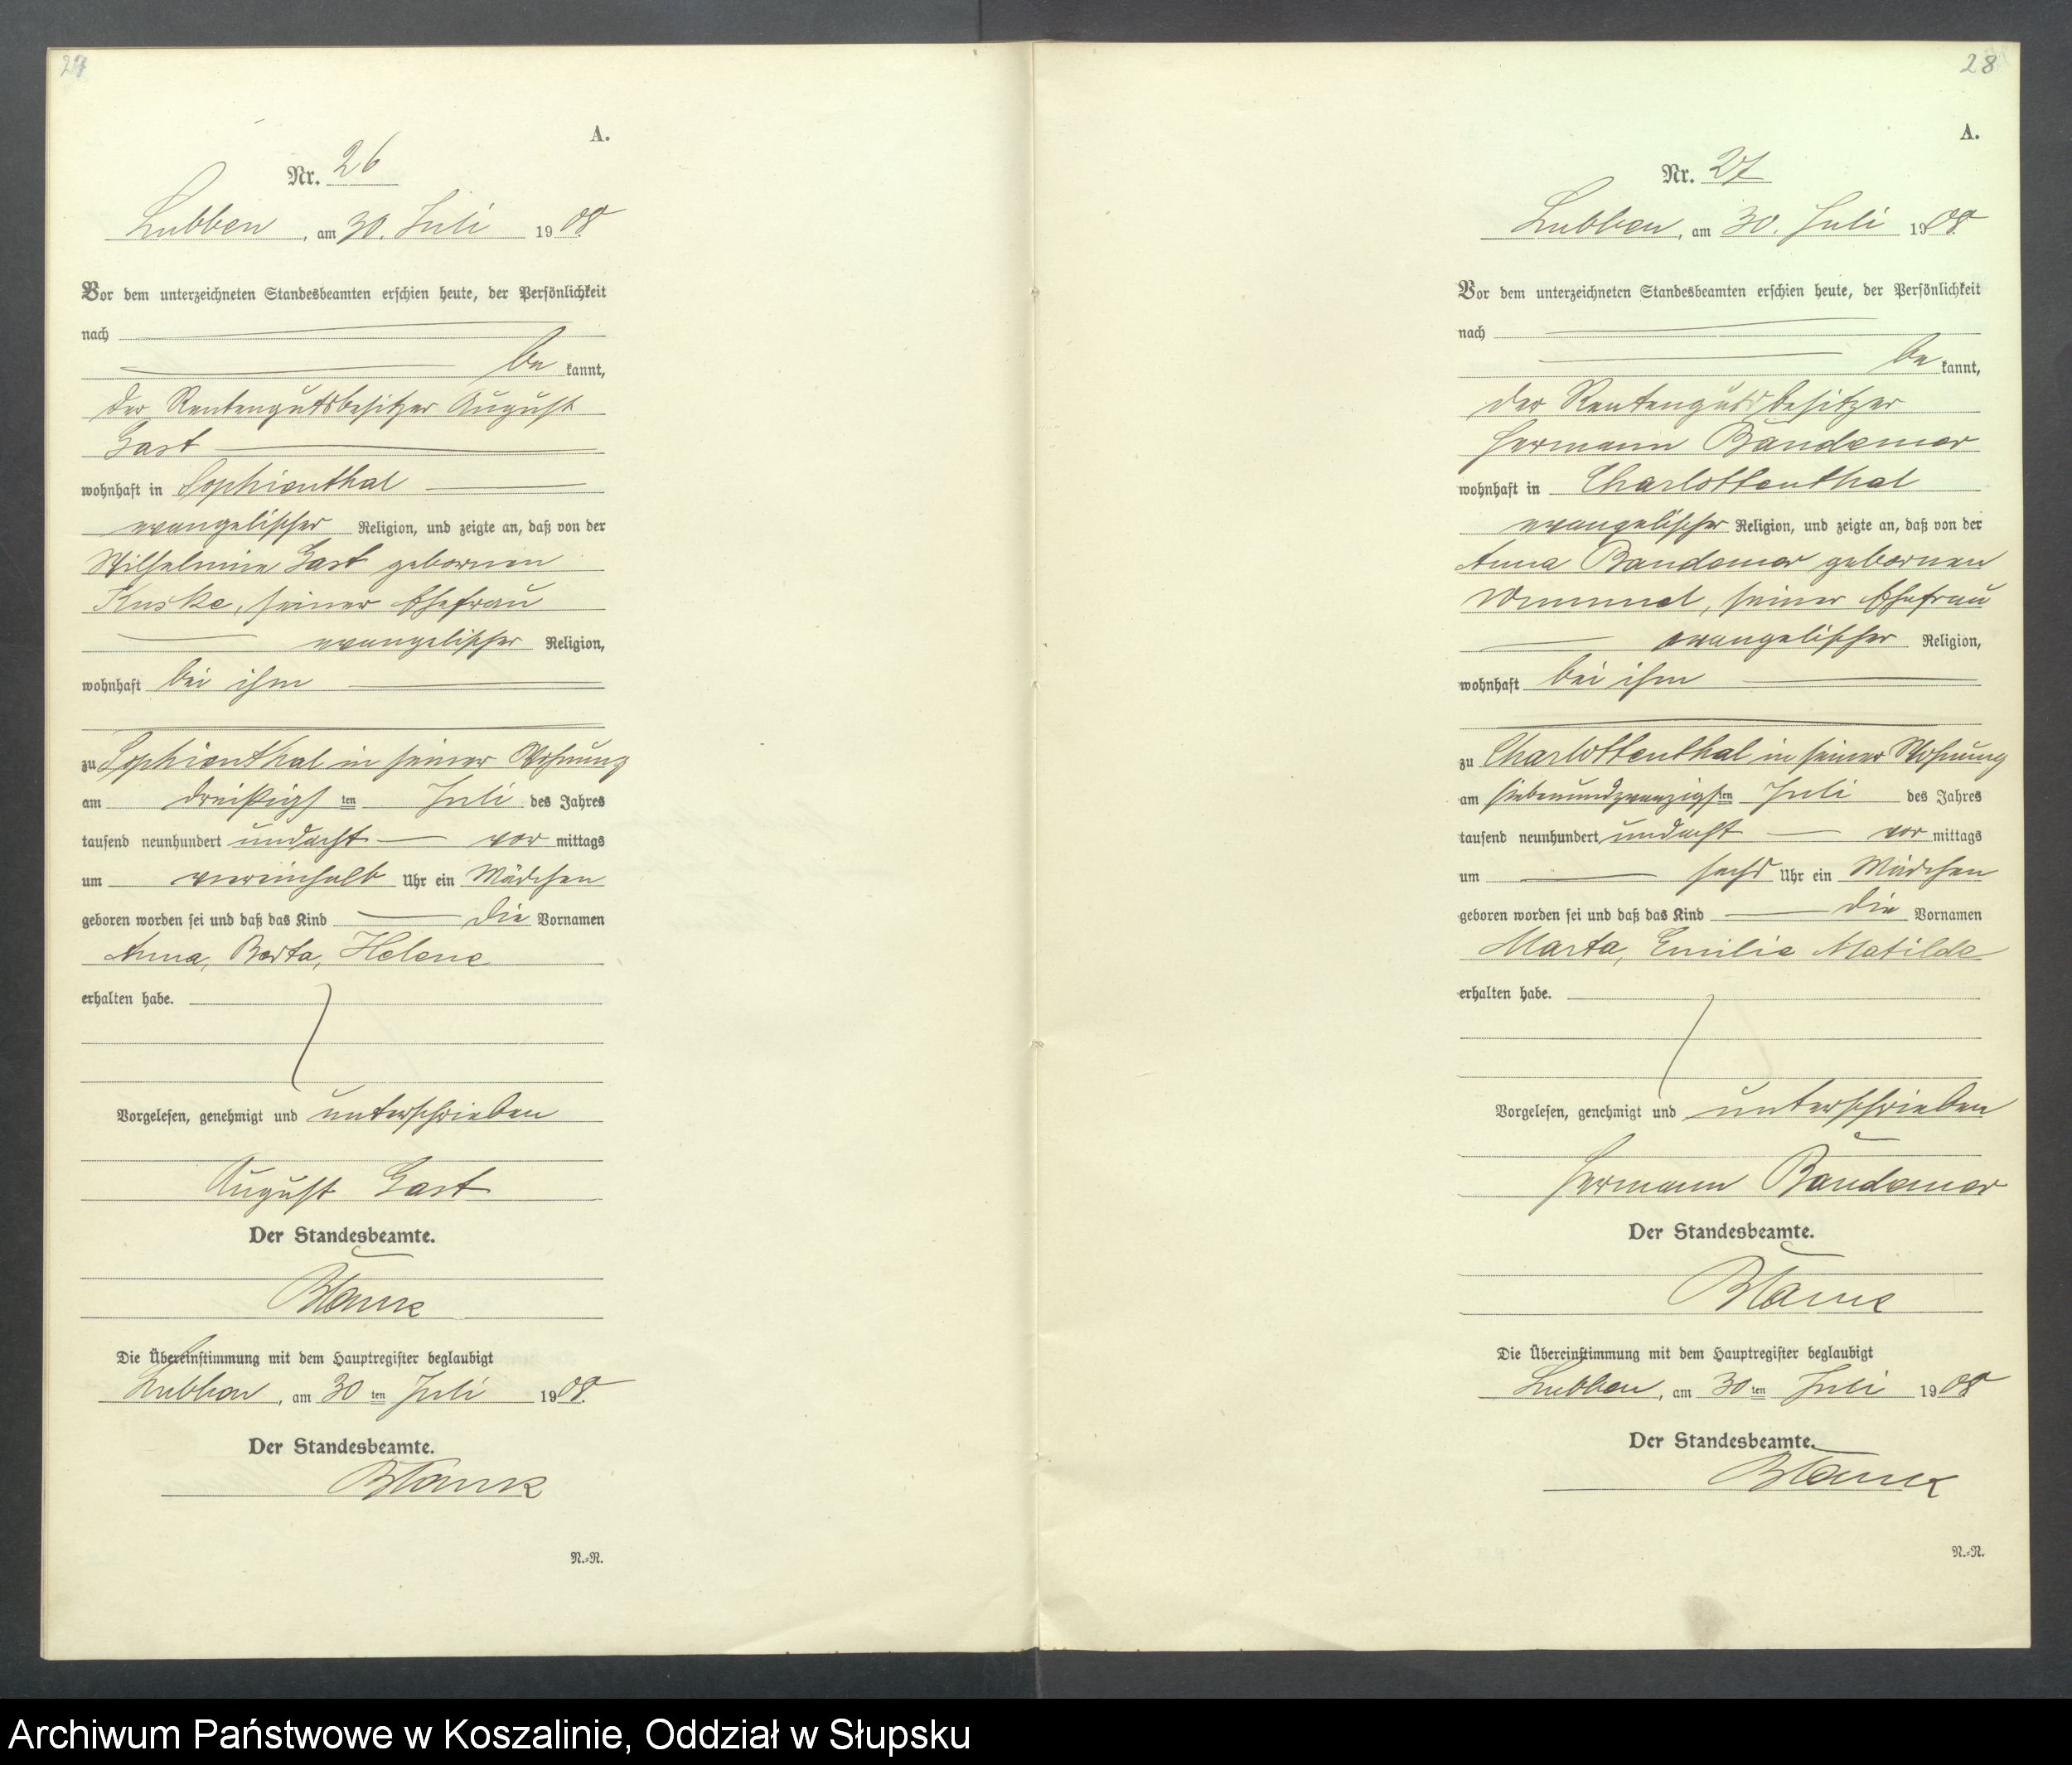 27
A.
Nr. 26
Lubben, am 30. Juli 1908
Vor dem unterzeichneten Standesbeamten erschien heute, der Persönlichkeit
nach
be kannt,
der Rentengutsbesitzer August
Gast
wohnhaft in Sophienthal
evangelischer Religion, und zeigte an, daß von der
Wilhelmine Gast gebornen
Kuske, seiner Ehefrau
evangelischer Religion,
wohnhaft bei ihm
zu Sophienthal in seiner Wohnung
am dreißigsten Juli des Jahres
tausend neunhundert undacht vor mittags
um viereinhalb Uhr ein Mädchen
geboren worden sei und daß das Kind die Vornamen
Anna, Berta, Helene
erhalten habe.
Vorgelesen, genehmigt und unterschrieben
August Gast
Der Standesbeamte.
Die Übereinstimmung mit dem Hauptregister beglaubigt
Lubben, am 30 ten Juli 1908.
Der Standesbeamte.
N.=N.
28
A.
Nr. 27
Lubben, am 30. Juli 1908.
Vor dem unterzeichneten Standesbeamten erschien heute, der Persönlichkeit
nach
be kannt,
der Rentengutsbesitzer
Hermann Bandemer
wohnhaft in Charlottenthal
evangelischer Religion, und zeigte an, daß von der
Anna Bandemer gebornen
seiner Ehefrau
evangelischer Religion,
wohnhaft bei ihm
zu Charlottenthal in seiner Wohnung
am siebenundzwanzigsten Juli des Jahres
tausend neunhundert undacht vor mittags
um sechs Uhr ein Mädchen
geboren worden sei und daß das Kind die Vornamen
Marta, Emilie Matilde
erhalten habe.
Vorgelesen, genehmigt und unterschrieben
Hermann Bandemer
Der Standesbeamte.
Die Übereinstimmung mit dem Hauptregister beglaubigt
Lubben, am 30 ten Juli 1908
Der Standesbeamte.
N.=N.
Archiwum Państwowe w Koszalinie, Oddział w Słupsku